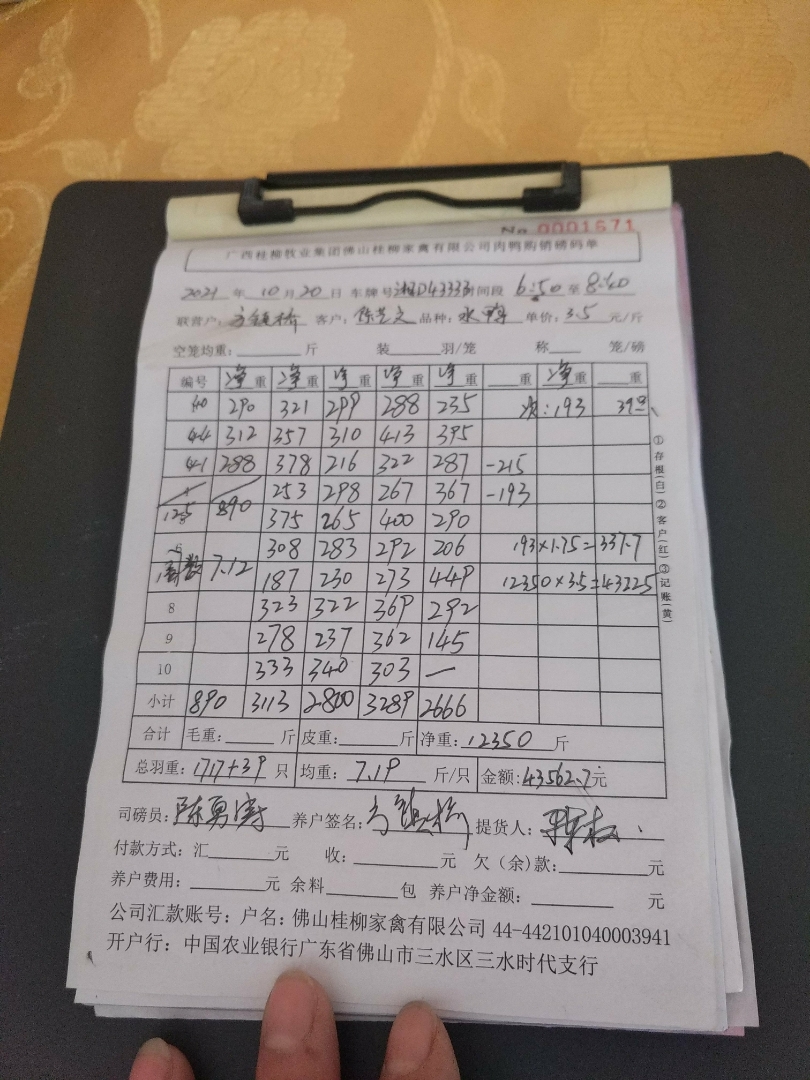 No 0001671
广西桂柳牧业集团佛山桂柳家禽有限公司肉鸭购销磅码单
2021 年 10 月 20 日 车牌号 湘D43333 时间段 6:50 至 8:40
联营户: 客户: 陈艺文 品种: 水鸭 单价: 3.5 元/斤
空笼均重: 斤 装 羽/笼 称 笼/磅
编号 净重 净重 净重 净重 净重 重 净重 重
40 290 321 299 288 235 次:193 39只
44 312 357 310 413 395
41 288 378 216 322 287 -215
125 890 253 298 267 367 -193
375 265 400 290
6 308 283 292 206 193×1.75=337.7
7.12 187 230 273 449 12350×3.5=43225
8 323 322 369 292
9 278 237 362 145
10 333 340 303 —
小计 890 3113 2800 3289 2666
合计 毛重: 斤 皮重: 斤 净重: 12350 斤
总羽重: 1717+39 只 均重: 7.19 斤/只 金额: 43562.7元
司磅员: 陈勇 养户签名: 提货人:
付款方式: 汇 元 收: 元 欠(余)款: 元
养户费用: 元 余料 包 养户净金额: 元
公司汇款账号: 户名: 佛山桂柳家禽有限公司 44-442101040003941
开户行: 中国农业银行广东省佛山市三水区三水时代支行
①存根(白)②客户(红)③记账(黄)